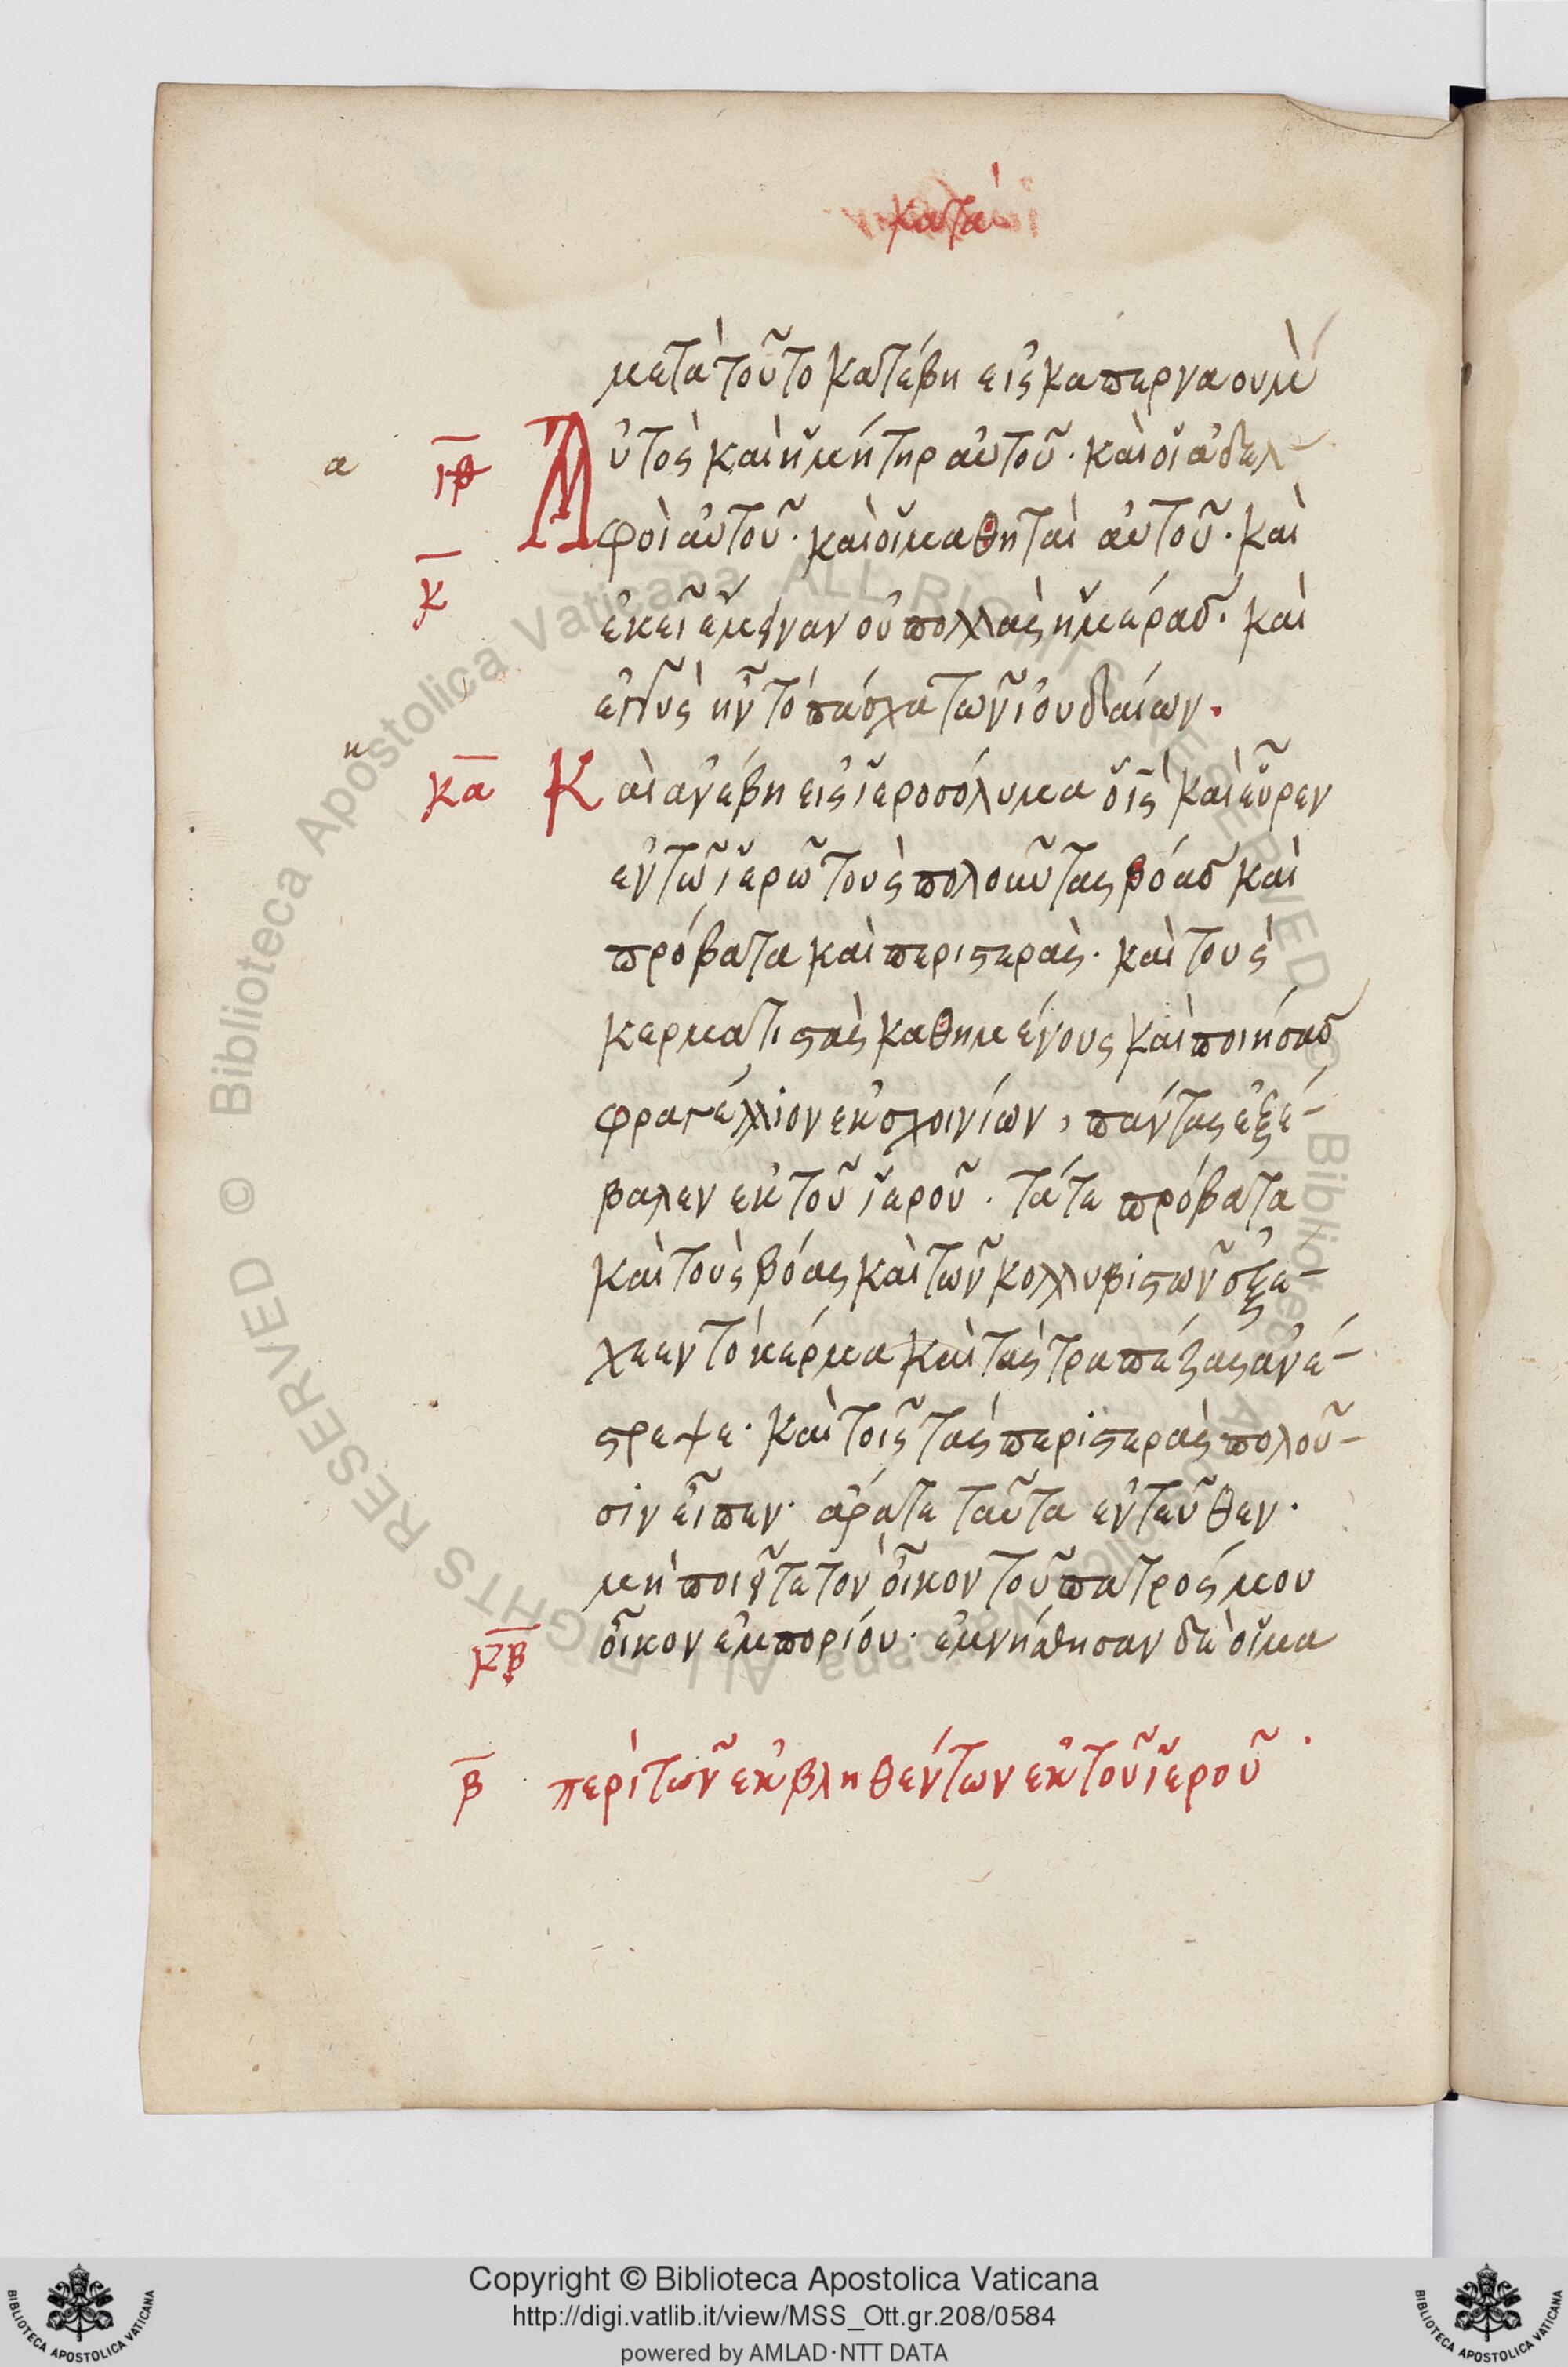 κατὰ
μετὰ τοῦτο κατέβη εἰς καπερναοὺμ
Αὐτὸς καὶ ἡ μήτηρ αὐτοῦ· καὶ οἱ ἀδελ-
φοὶ αὐτοῦ· καὶ οἱ μαθηταὶ αὐτοῦ· καὶ
κ̅
ἐκεῖ ἔμειναν οὐ πολλὰς ἡμέρας· καὶ
ἐγγὺς ἦν τὸ πάσχα τῶν ἰουδαίων.
κα̅ Καὶ ἀνέβη εἰς ἱεροσόλυμα ὁ ι̅ς̅ καὶ εὗρεν
ἐν τῶ ἱερῶ τοὺς πολοῦντας βόας καὶ
πρόβατα καὶ περιστερὰς· καὶ τοὺς
κερματιστὰς καθημένους καὶ ποιήσας
φραγέλλιον ἐκ σχοινίων, πάντας ἐξέ-
βαλεν ἐκ τοῦ ἱεροῦ· τά τε πρόβατα
καὶ τοὺς βόας καὶ τῶν κολλυβιστῶν ἐξέ-
χεεν τὸ κέρμα καὶ τὰς τραπέζας ἀνέ-
στρεψε· καὶ τοῖς τὰς περιστερὰς πολοῦ-
σιν εἶπεν· ἄρατε ταῦτα ἐντεῦθεν·
μὴ ποιῆτε τὸν οἶκον τοῦ πατρός μου
κβ̅ οἶκον ἐμπορίου· ἐμνήσθησαν δὲ οἱ μα
β̅ περὶ τῶν ἐκβληθέντων ἐκ τοῦ ἱεροῦ
© Biblioteca Apostolica Vaticana ALL RIGHTS RESERVED © Biblioteca Apostolica Vaticana ALL RIGHTS RESERVED
Copyright © Biblioteca Apostolica Vaticana
http://digi.vatlib.it/view/MSS_Ott.gr.208/0584
powered by AMLAD·NTT DATA
BIBLIOTECA APOSTOLICA VATICANA
BIBLIOTECA APOSTOLICA VATICANA